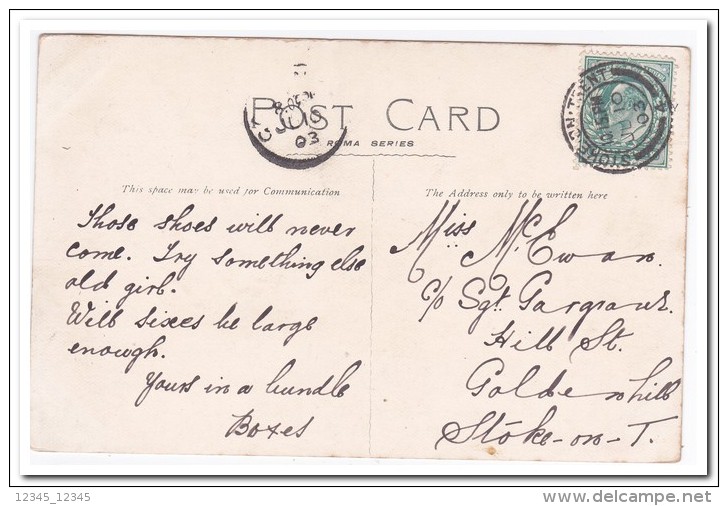 POST CARD
ROMA SERIES
This space may be used for Communication
The Address only to be written here
Those shoes will never
come. Try something else
old girl.
Will sixes be large
enough.
Yours in a bundle
Boxes
Miss McEwan.
c/o Sgt.
Hill St.
Goldenhill
Stoke-on-T.
STOKE-ON-TRENT
03
03
12345_12345
delcampe.net